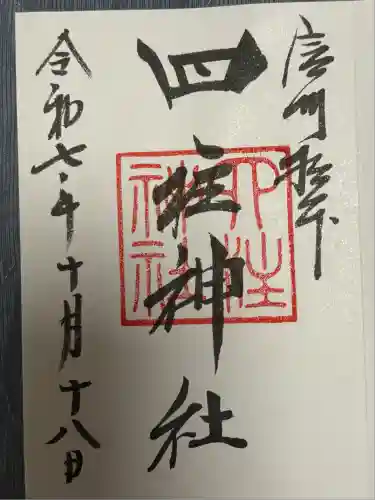 信州松本
四柱神社
四柱神社
令和七年十月十八日